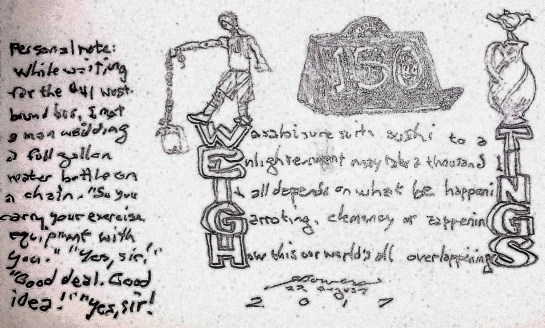 Personal note:
While waiting
for the West.
bound bus, I met
a man
a full gallon
water bottle on
a chain. "So you
carry your exercise
equipment with
you." "Yes, sir!"
"Good deal. Good
idea!" "Yes, sir!
150
Wasabi sure suits sushi to a T
Enlightenment may take a thousand I
It all depends on what be happeniN
Garroting, clemency or zappeninG
How this our world's all overlappingS
22 August
2017